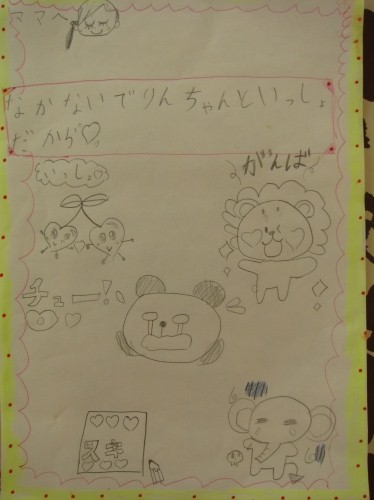 ママへ
なかないでりんちゃんといっしょ
だから♡
いっしょ
がんば
チュー!
スキ